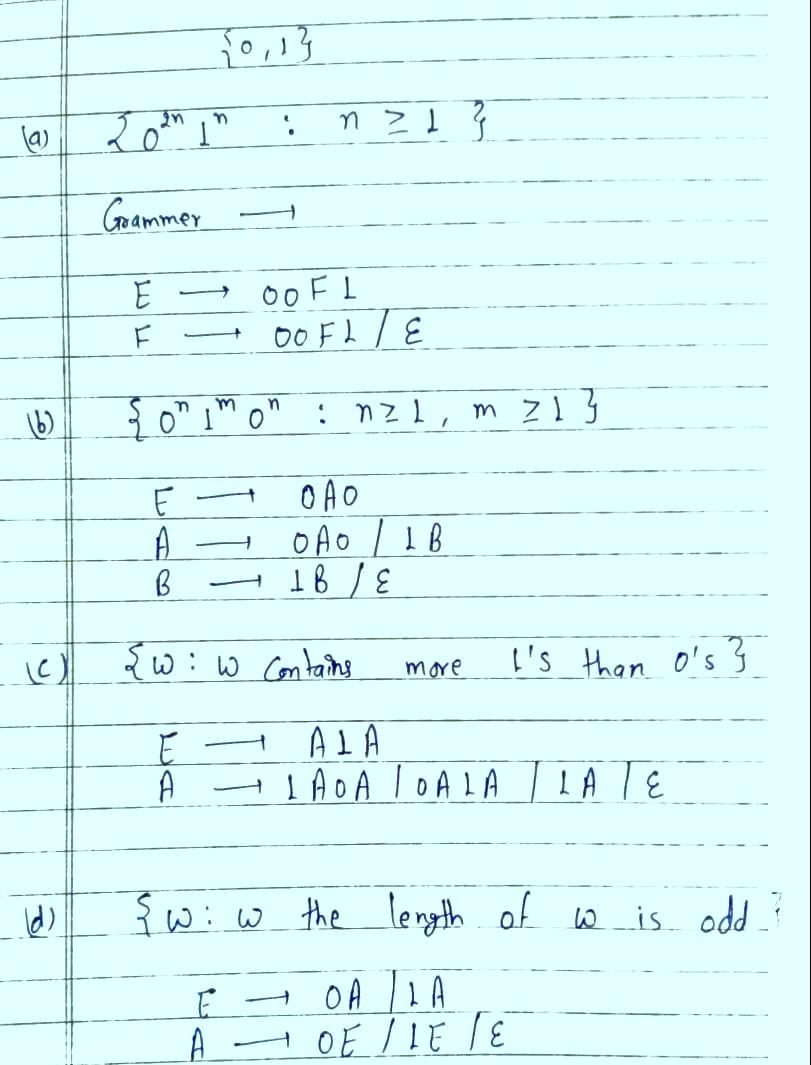 {0,1}
(a) {0²ⁿ 1ⁿ : n ≥ 1 }
Grammer →
E → 00F1
F → 00F1 / ε
(b) {0ⁿ 1ᵐ 0ⁿ : n≥1, m ≥1}
E → 0A0
A → 0A0 / 1B
B → 1B / ε
(c) {w : w contains more 1's than 0's}
E → A1A
A → 1A0A / 0A1A / 1A / ε
(d) {w : w the length of w is odd}
E → 0A / 1A
A → 0E / 1E / ε